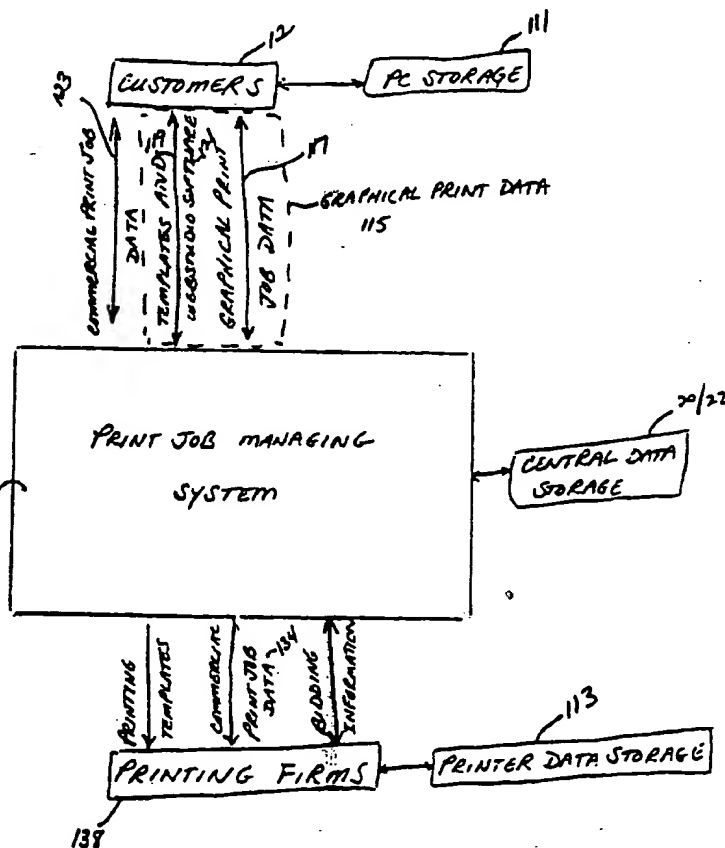 12
111
CUSTOMERS
PC STORAGE
123
COMMERCIAL PRINT JOB
DATA
119
TEMPLATES AND
WEBSTUDIO SOFTWARE
GRAPHICAL PRINT
JOB DATA
117
GRAPHICAL PRINT DATA
115
PRINT JOB MANAGING
SYSTEM
CENTRAL DATA
STORAGE
PRINTING
TEMPLATES
COMMERCIAL
PRINT JOB
DATA 134
BIDDING
INFORMATION
113
PRINTING FIRMS
PRINTER DATA STORAGE
138